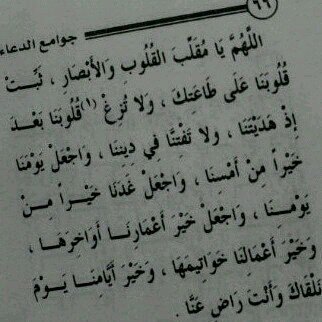 ٦٦ جوامع الدعاء
اللَّهُمَّ يَا مُقَلِّبَ القُلُوبِ وَالأَبْصَارِ ، ثَبِّتْ
قُلُوبَنَا عَلَى طَاعَتِكَ ، وَلَا تُزِغْ (١) قُلُوبَنَا بَعْدَ
إِذْ هَدَيْتَنَا ، وَلَا تَفْتِنَّا فِي دِينِنَا ، وَاجْعَلْ يَوْمَنَا
خَيْراً مِنْ أَمْسِنَا ، وَاجْعَلْ غَدَنَا خَيْراً مِنْ
يَوْمِنَا ، وَاجْعَلْ خَيْرَ أَعْمَارِنَا أَوَاخِرَهَا ،
وَخَيْرَ أَعْمَالِنَا خَوَاتِيمَهَا ، وَخَيْرَ أَيَّامِنَا يَوْمَ
نَلْقَاكَ وَأَنْتَ رَاضٍ عَنَّا .